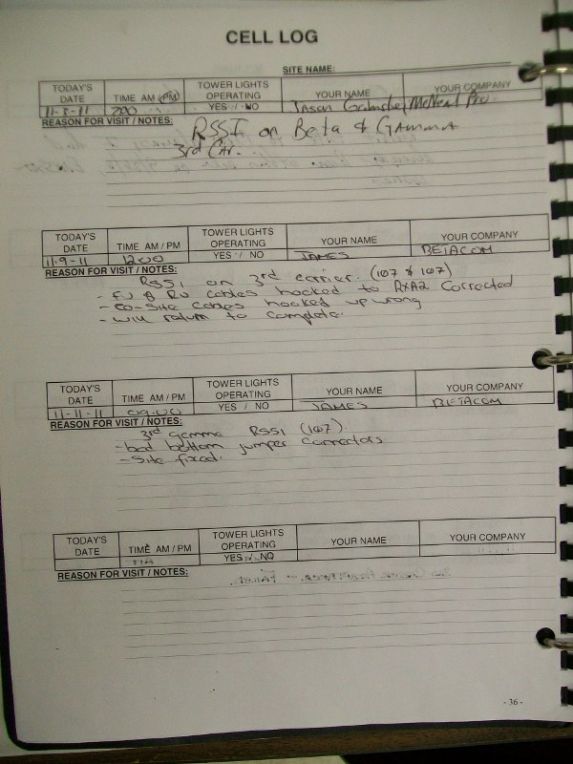 CELL LOG
SITE NAME:
TODAY'S DATE TIME AM / PM TOWER LIGHTS OPERATING YOUR NAME YOUR COMPANY
11-3-11 200 YES / NO Jason
REASON FOR VISIT / NOTES:
RSSI on Beta & Gamma
3rd Car.
TODAY'S DATE TIME AM / PM TOWER LIGHTS OPERATING YOUR NAME YOUR COMPANY
11-9-11 1200 YES / NO JAMES BETACOM
REASON FOR VISIT / NOTES:
RSSI on 3rd carrier. (107 & 107)
- EU & RU cables hooked to RXA2 Corrected
- co-site cables hooked up wrong
- will return to complete.
TODAY'S DATE TIME AM / PM TOWER LIGHTS OPERATING YOUR NAME YOUR COMPANY
11-11-11 09:00 YES / NO JAMES BETACOM
REASON FOR VISIT / NOTES:
3rd gamma RSSI (107).
- bad bottom jumper connectors
- Site fixed.
TODAY'S DATE TIME AM / PM TOWER LIGHTS OPERATING YOUR NAME YOUR COMPANY
YES / NO
REASON FOR VISIT / NOTES:
- 36 -